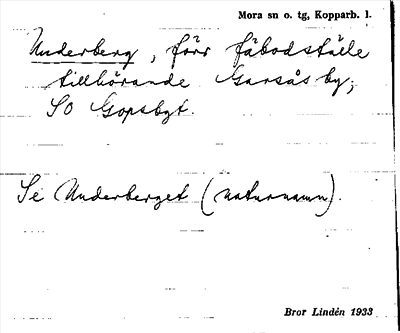 Mora sn o. tg, Kopparb. l.
Underberg, förr fäbodställe
tillhörande Garsås by,
SO Gopsbgt.
Se Underberget (naturnamn).
Bror Lindén 1933